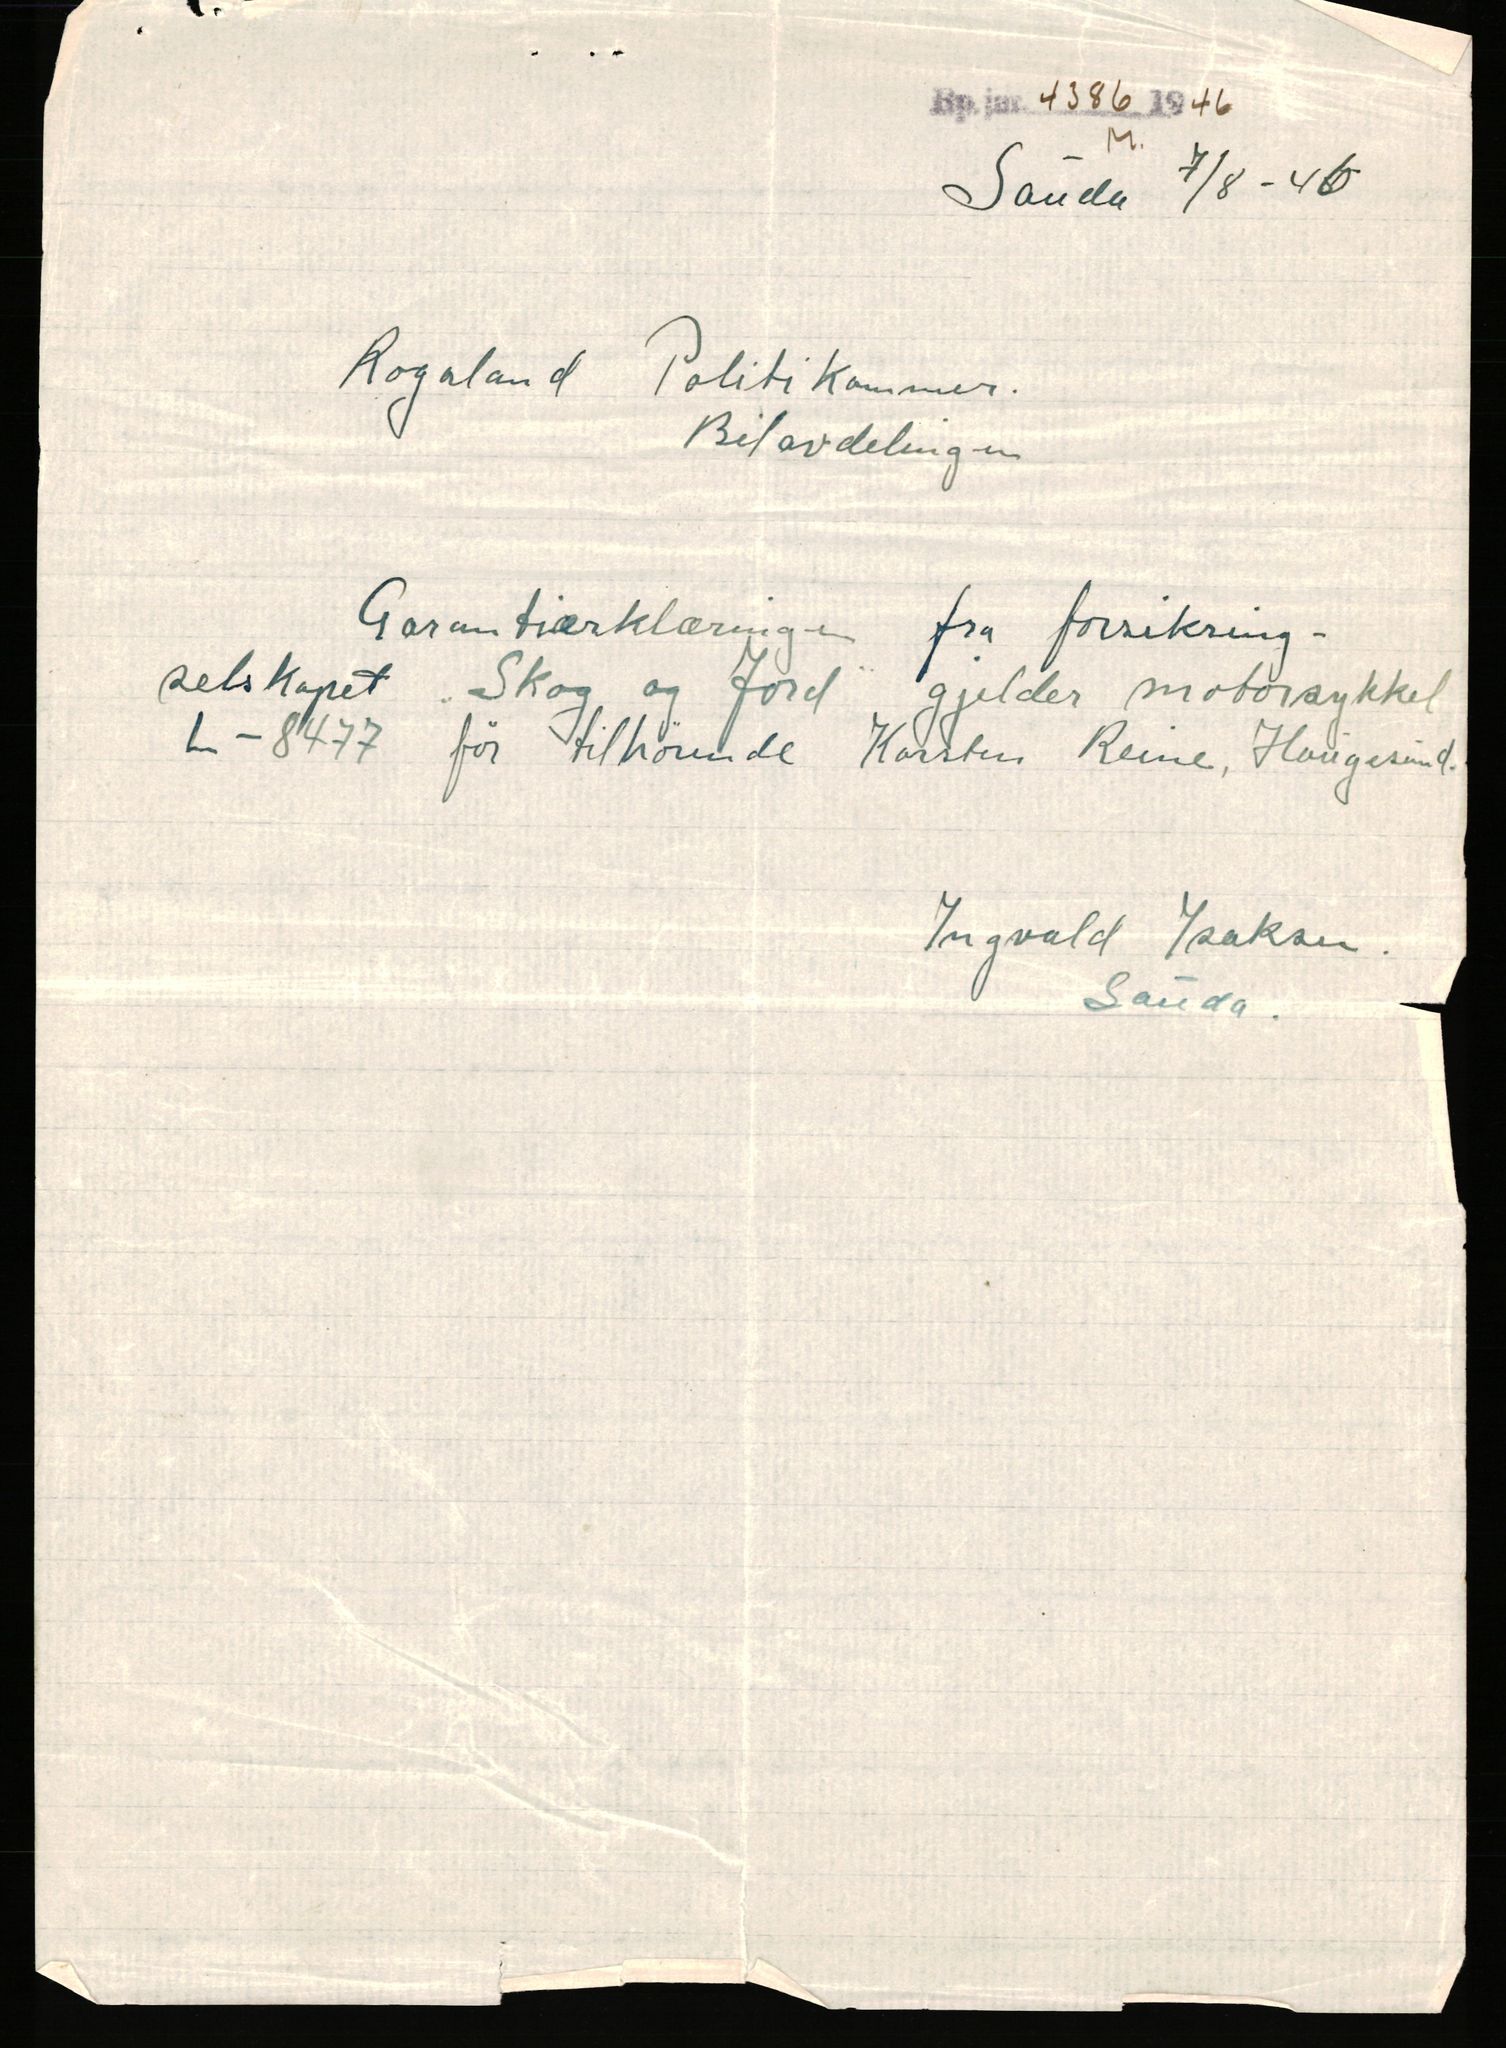 Rp. jnr. 4386 1946
M.
Saŭda 7/8 - 46
Rogaland Politikammer.
Bilavdelingen
Garantiærklæringen fra forsikring-
selskapet "Skog og Jord" gjelder motorsykkel
L-8477 før tilhörende Karsten Reine, Haŭgesŭnd.
Ingvald Isaksen.
Saŭda.